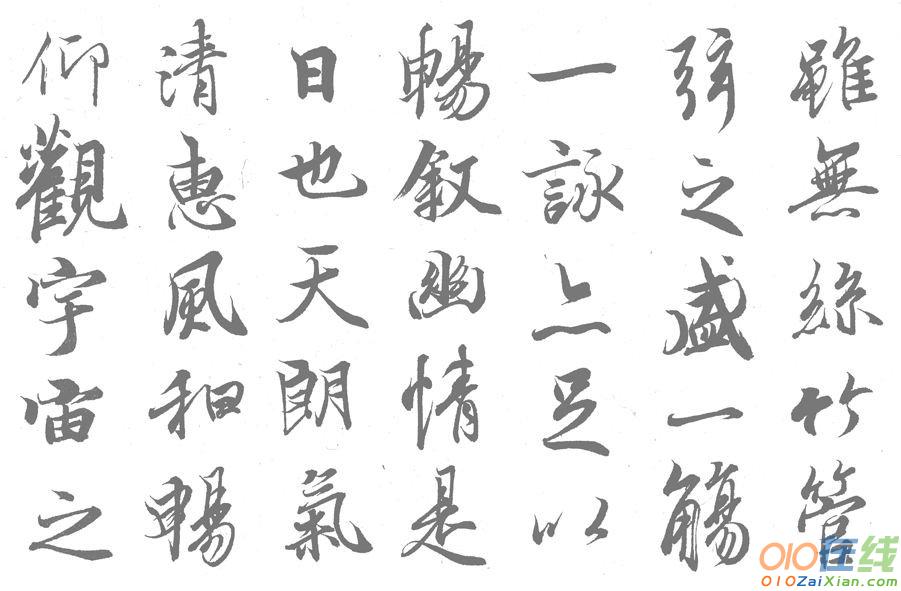 雖無絲竹管
弦之盛一觴
一詠亦足以
暢敘幽情是
日也天朗氣
清惠風和暢
仰觀宇宙之
010在线
010ZaiXian.com